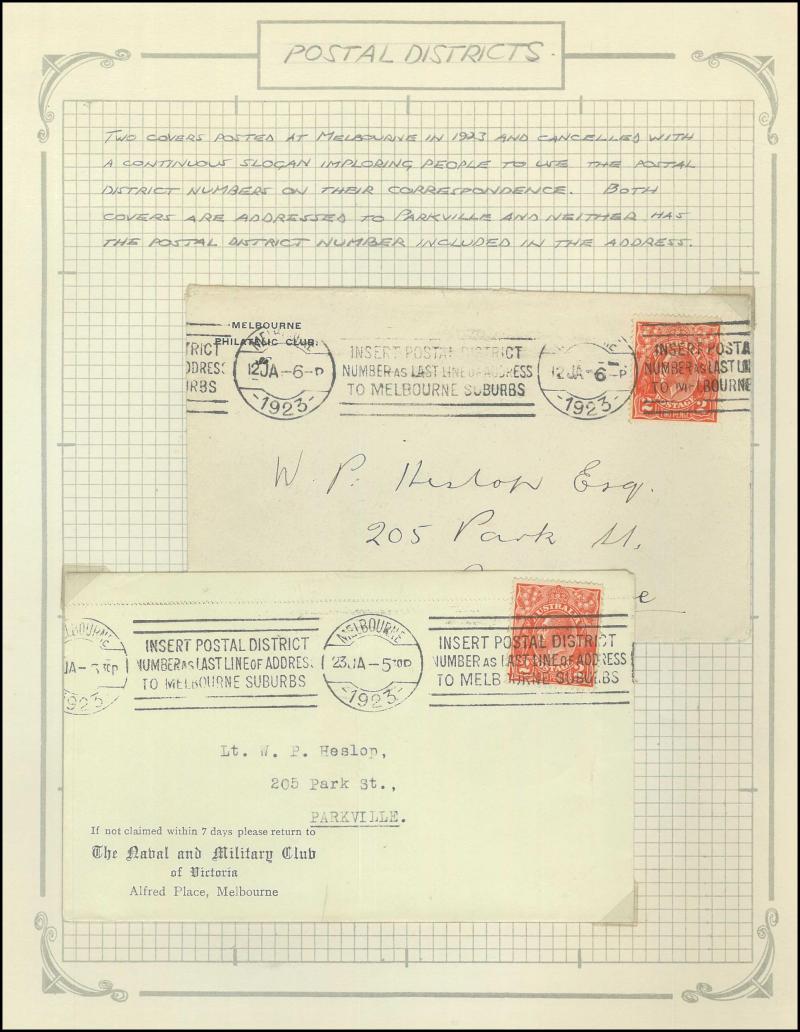 POSTAL DISTRICTS.
TWO COVERS POSTED AT MELBOURNE IN 1923 AND CANCELLED WITH
A CONTINUOUS SLOGAN IMPLORING PEOPLE TO USE THE POSTAL
DISTRICT NUMBERS ON THEIR CORRESPONDENCE. BOTH
COVERS ARE ADDRESSED TO PARKVILLE AND NEITHER HAS
THE POSTAL DISTRICT NUMBER INCLUDED IN THE ADDRESS.
MELBOURNE
PHILATELIC CLUB.
TRICT
DDRESS
URBS
12JA-6-P
-1923-
INSERT POSTAL DISTRICT
NUMBER AS LAST LINE OF ADDRESS
TO MELBOURNE SUBURBS
12JA-6-P
-1923-
INSERT POSTA
NUMBER AS LAST LIN
TO MELBOURNE
2 POSTAGE 2
W. P. Heslop Esq.
205 Park St.
e
LBOURNE
JA-5 30P
923-
INSERT POSTAL DISTRICT
NUMBER AS LAST LINE OF ADDRESS
TO MELBOURNE SUBURBS
MELBOURNE
23JA-5 30P
-1923-
AUSTRALIA
INSERT POSTAL DISTRICT
NUMBER AS LAST LINE OF ADDRESS
TO MELBOURNE SUBURBS
Lt. W. P. Heslop,
205 Park St.,
PARKVILLE.
If not claimed within 7 days please return to
The Naval and Military Club
of Victoria
Alfred Place, Melbourne